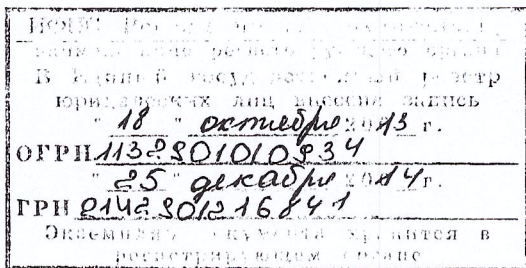 В Единый государственный реестр
юридических лиц внесена запись
" 18 " октября 2013 г.
ОГРН 1132901010934
" 25 " декабря 2014 г.
ГРН 2142901216841
Экземпляр документа хранится в
регистрирующем органе